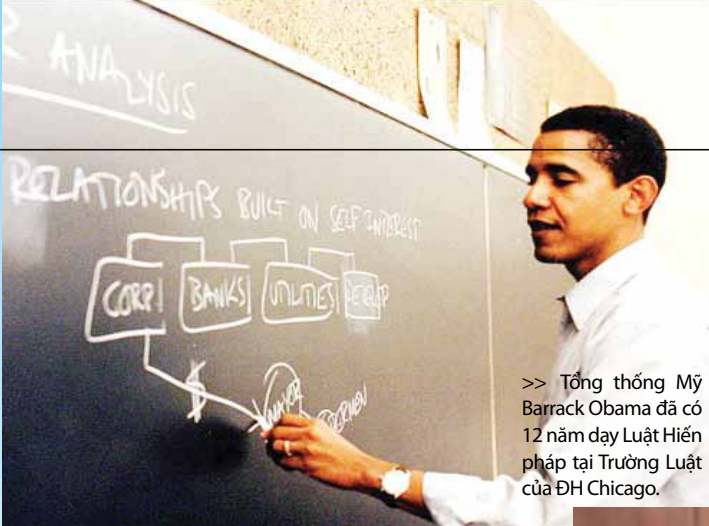 ANALYSIS
RELATIONSHIPS BUILT ON SELF INTEREST
CORP BANKS UTILITIES
$
MAYOR
>> Tổng thống Mỹ
Barrack Obama đã có
12 năm dạy Luật Hiến
pháp tại Trường Luật
của ĐH Chicago.